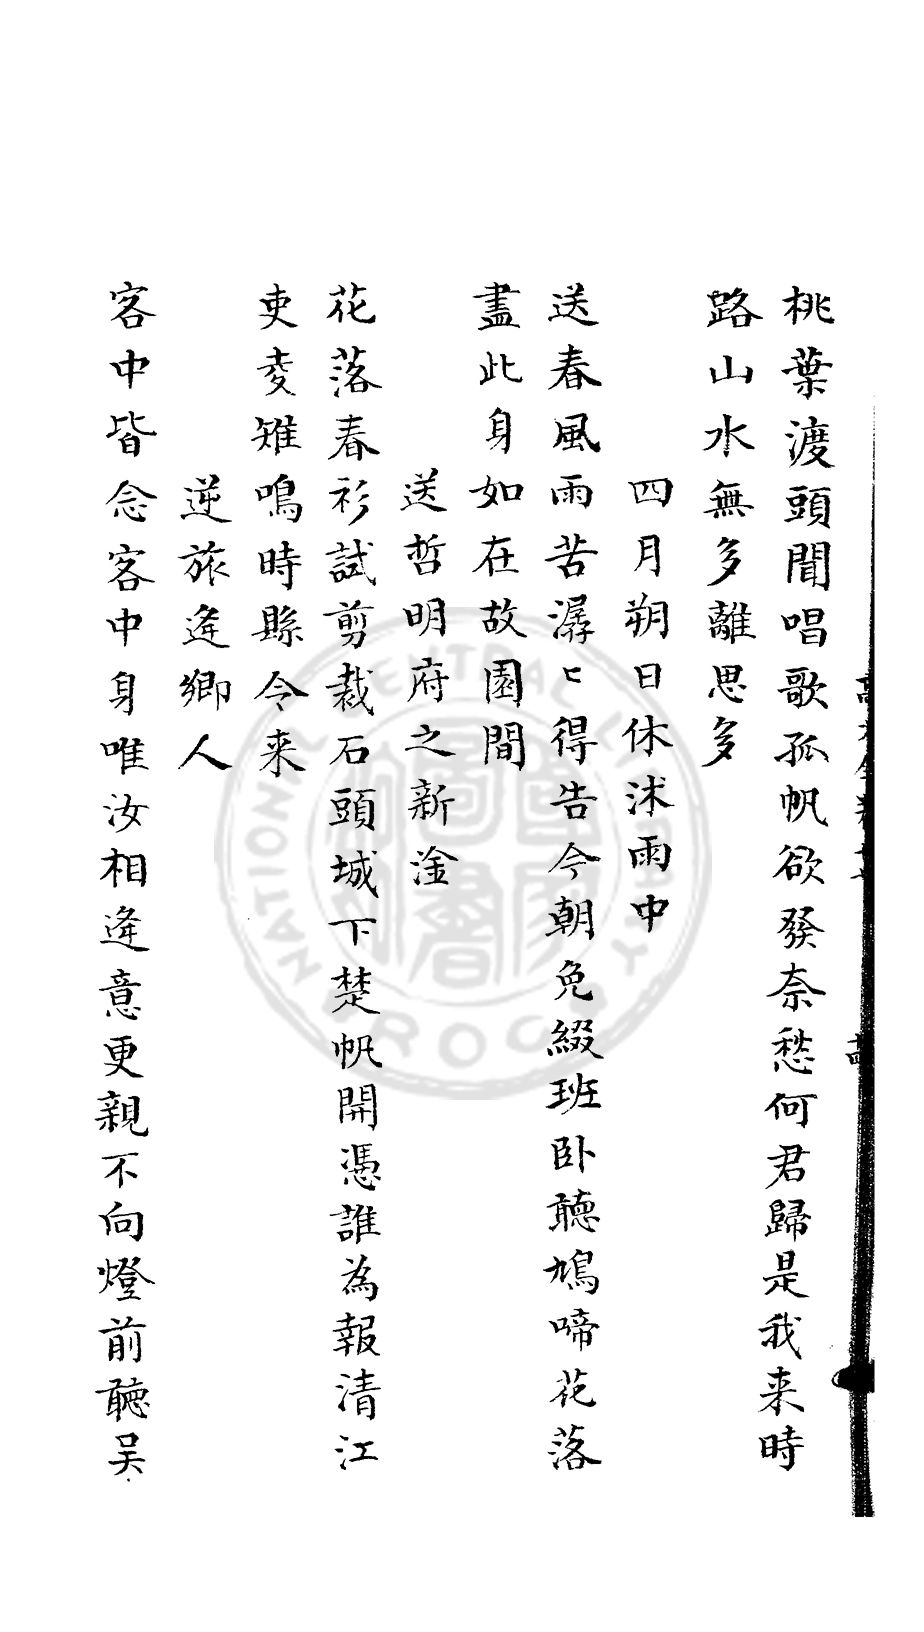 桃葉渡頭聞唱歌孤帆欲發奈愁何君歸是我来時
路山水無多離思多
四月朔日休沐雨中
送春風雨苦潺〻得告今朝免綴班卧聽鳩啼花落
盡此身如在故園間
送哲明府之新淦
花落春衫試剪裁石頭城下楚帆開憑誰為報清江
吏麦雉鳴時縣令来
逆旅逢鄉人
客中皆念客中身唯汝相逢意更親不向燈前聽吴
NATIONAL CENTRAL LIBRARY